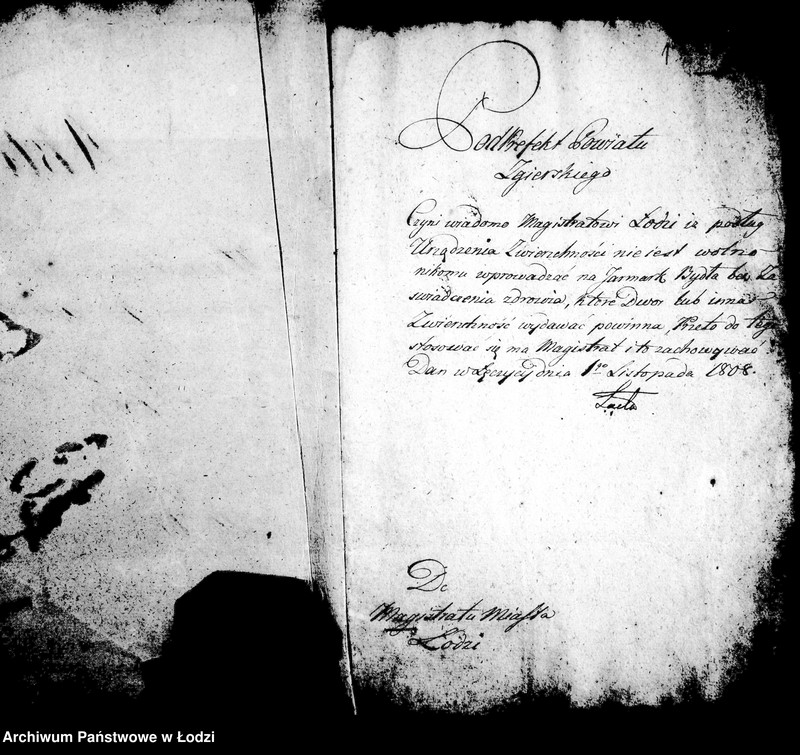 PodPrefekt Powiatu
Zgierskiego
Czyni wiadomo Magistratowi Łodzi iż podług
Urządzenia Zwierzchności nie iest wolno
nikomu wprowadzać na Jarmark Bydła bez Za
swiadczenia zdrowia, które Dwor lub inna
Zwierzchność wydawać powinna, Przeto do tego
stosować się ma Magistrat i to zachowywać
Dan w Łęczycy dnia 1go Listopada 1808.
Do
Magistratu Miasta
Łodzi
Archiwum Państwowe w Łodzi